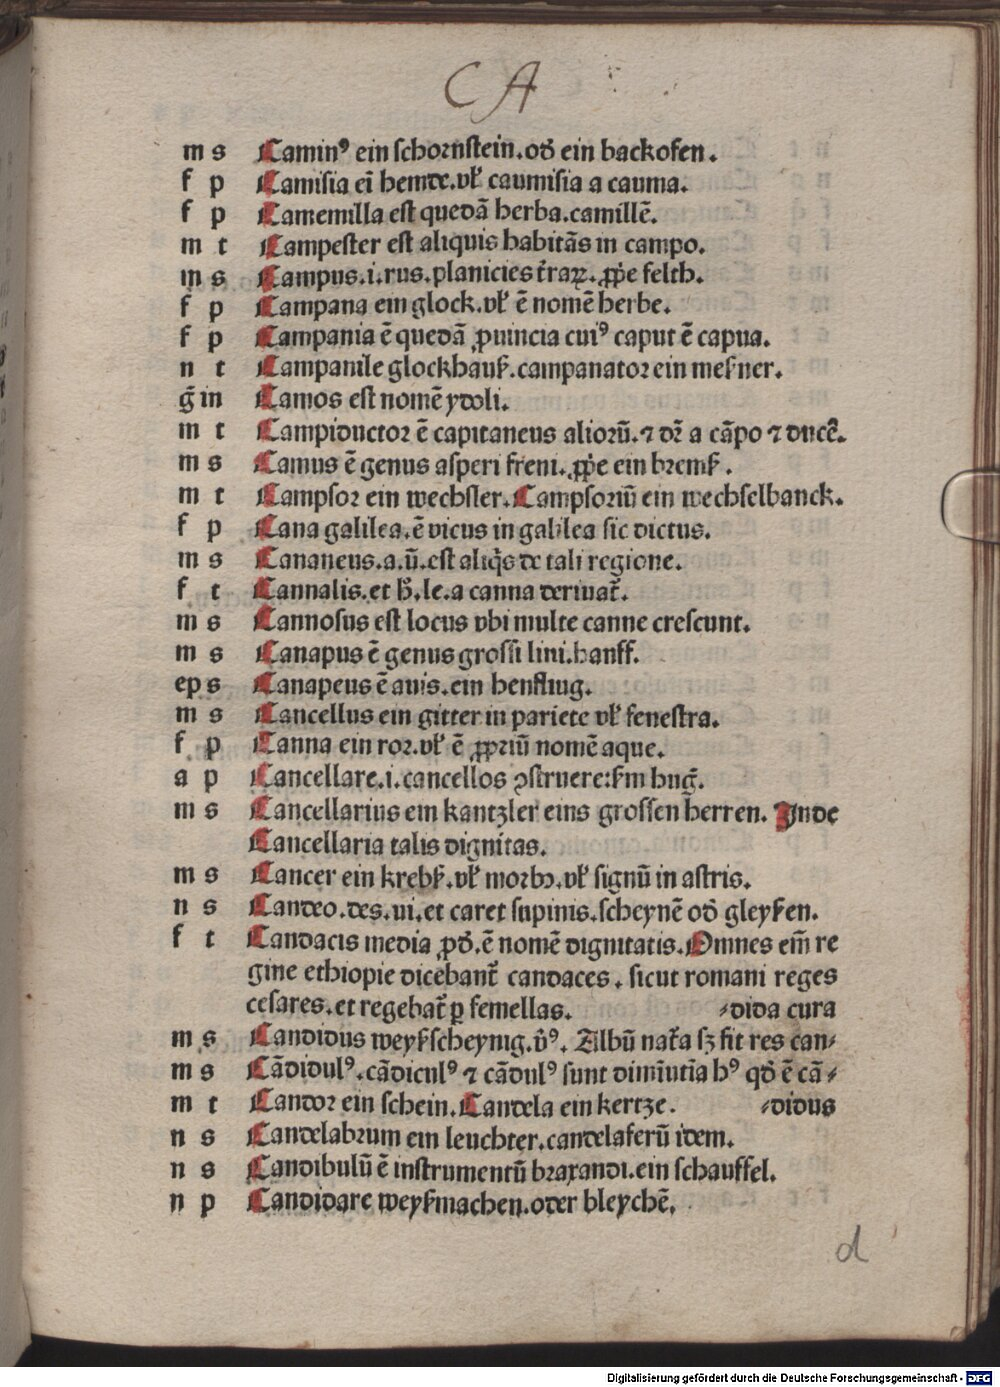 CA
m s Caminꝰ ein schornstein.od̕ ein backofen.
f p Camisia eī hemde.vl̕ caumisia a cauma.
f p Camemilla est quedā herba.camillē.
m t Campester est aliquis habitās in campo.
m s Campus.i.rus.planicies t̄raꝝ.ꝓp̱e felth.
f p Campana ein glock.vl̕ ē nomē herbe.
f p Campania ē quedā ꝓuincia cuiꝰ caput ē capua.
n t Campanile glockhauß.campanator ein meßner.
g̅ in Camos est nomē ydoli.
m t Campiductor ē capitaneus aliorū.⁊ dr̄ a cāpo ⁊ ducē.
m s Camus ē genus asperi freni.ꝓp̱e ein bremß.
m t Campsor ein wechsler.Campsoriū ein wechselbanck.
f p Cana galilea.ē vicus in galilea sic dictus.
m s Cananeus.a.ū.est aliq̄s de tali regione.
f t Cannalis.et h̕.le.a canna deriuat̄.
m s Cannosus est locus vbi multe canne crescunt.
m s Canapus ē genus grossi lini.hanff.
ep s Canapeus ē auis.ein henfling.
m s Cancellus ein gitter in pariete vl̕ fenestra.
f p Canna ein ror.vl̕ ē ꝓpriū nomē aque.
a p Cancellare.i.cancellos ꝯstruere:ẜm hug̅.
m s Cancellarius ein kantzler eins grossen herren. Inde
Cancellaria talis dignitas.
m s Cancer ein krebß.vl̕ morbꝰ.vl̕ signū in astris.
n s Candeo.des.ui.et caret supinis.scheynē od̕ gleyßen.
f t Candacis media ꝓd̕.ē nomē dignitatis.Omnes em̄ re
gine ethiopie dicebant̄ candaces. sicut romani reges
cesares.et regebat̄ ꝑ femellas. ⸗dida cura
m s Candidus weyßscheynig.v̕ꝰ. Albū nat̄a sꝫ fit res can⸗
m s Cādidulꝰ.cādiculꝰ ⁊ cādulꝰ sunt diminutīa hꝰ qd̕ ē cā⸗
m t Candor ein schein.Candela ein kertze. ⸗didus
n s Candelabrum ein leuchter.candelaferū idem.
n s Candibulū ē instrumentū braxandi.ein schauffel.
n p Candidare weyßmachen.oder bleychē.
d
Digitalisierung gefördert durch die Deutsche Forschungsgemeinschaft - DFG